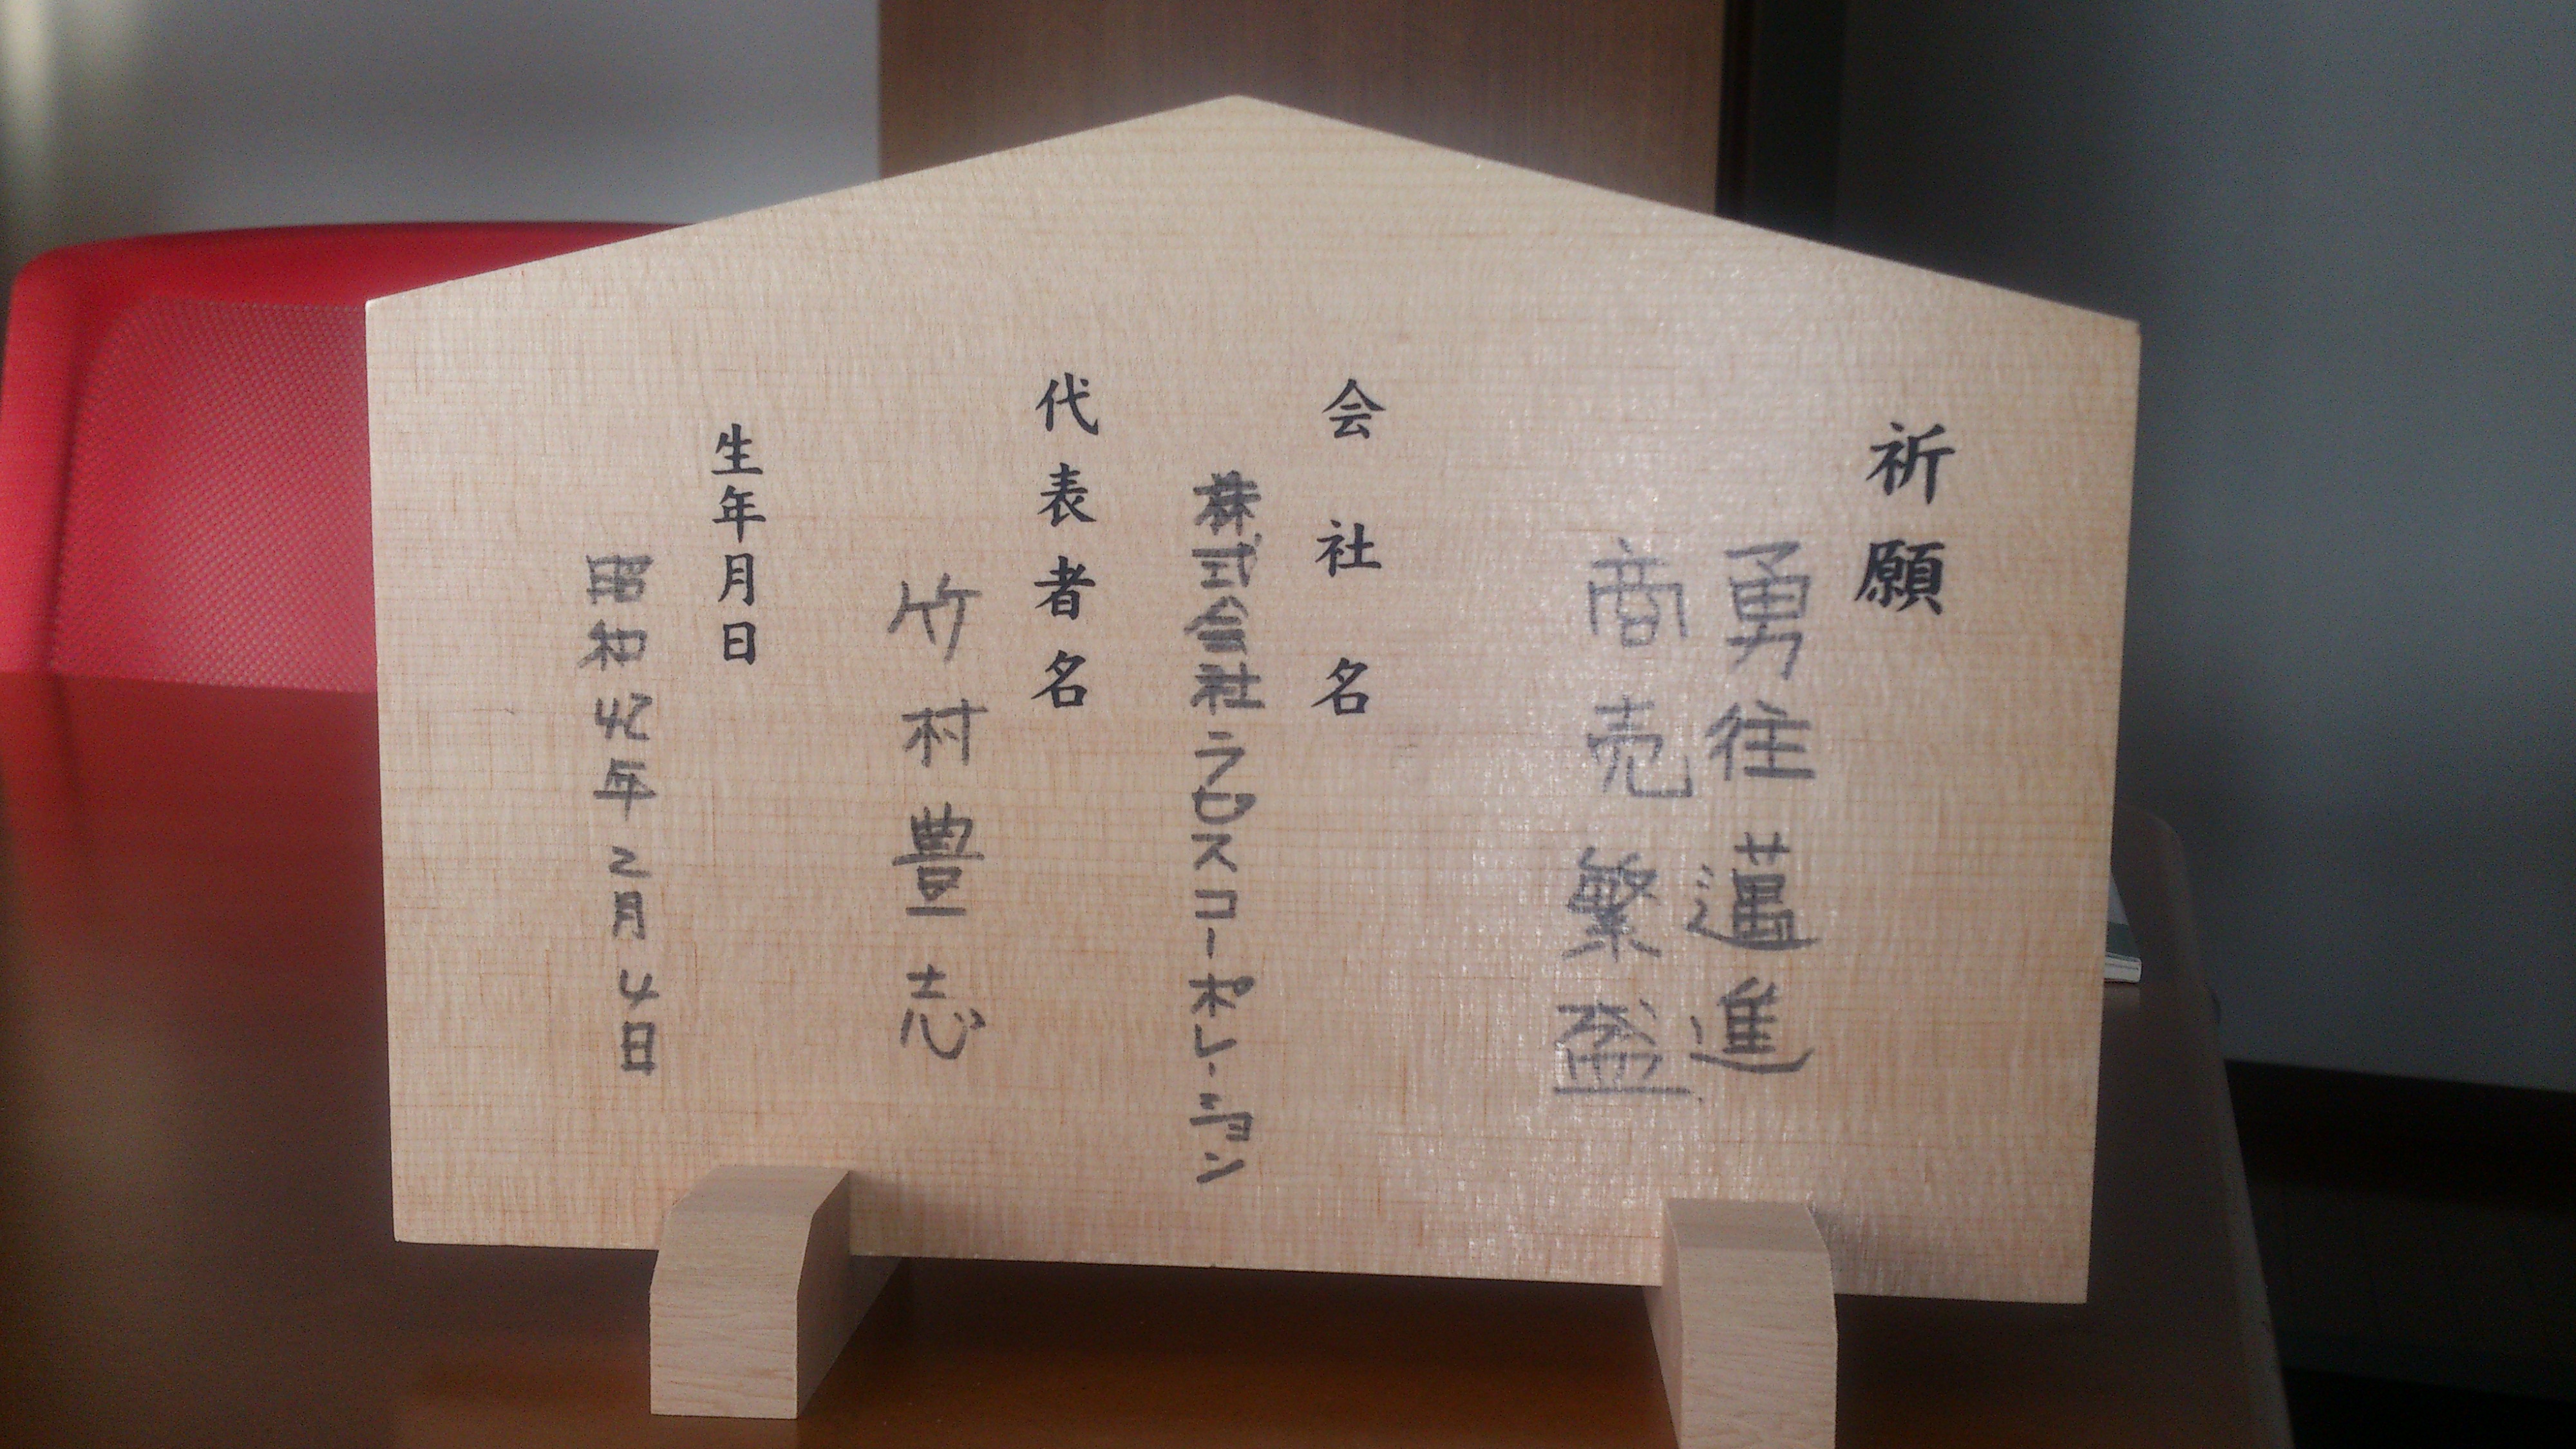 祈願
勇往邁進
商売繁盛
会社名
株式会社ラピスコーポレーション
代表者名
竹村豊志
生年月日
昭和42年2月4日